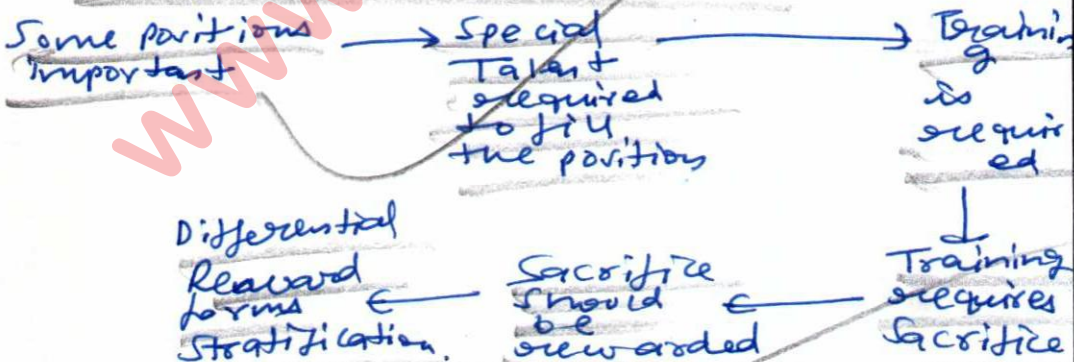 Some positions
important
→ Special
Talent
required
to fill
the positions
→ Trainin
g
is
requir
ed
↓
Training
requires
Sacrifice
← Sacrifice
should
be
rewarded
← Differential
Reward
forms
stratification.
www